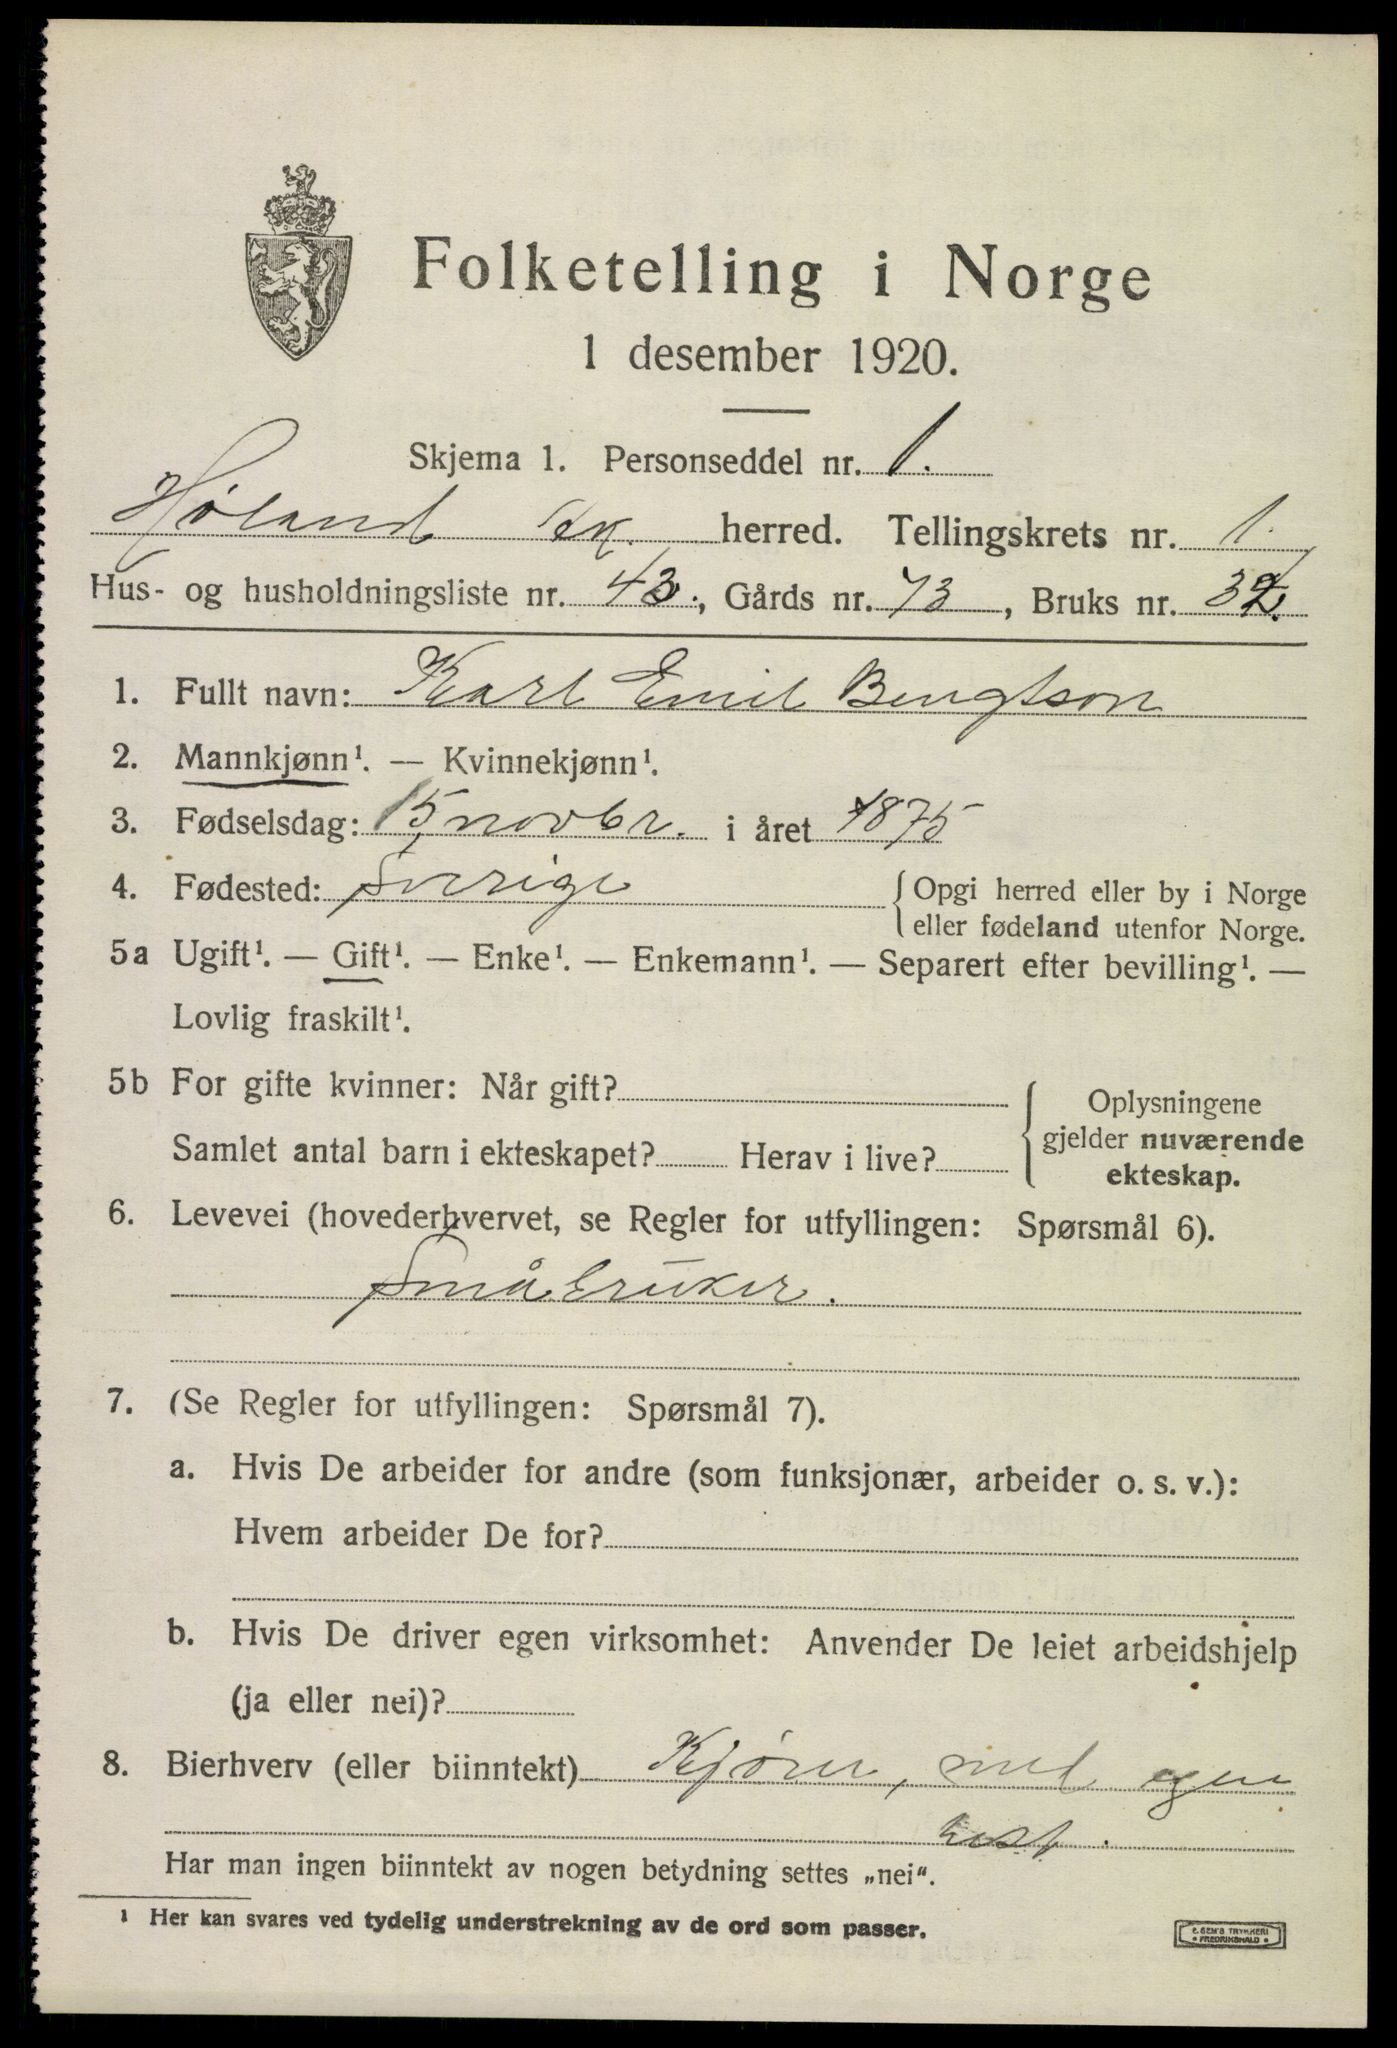 Folketelling i Norge
1 desember 1920.
Skjema 1. Personseddel nr. 1.
Høland herred. Tellingskrets nr. 1.
Hus- og husholdningsliste nr. 43., Gårds nr. 73, Bruks nr. 32.
1. Fullt navn: Karl Emil Bengtson
2. Mannkjønn¹. — Kvinnekjønn¹.
3. Fødselsdag: 15 novbr. i året 1875
4. Fødested: Sverige {Opgi herred eller by i Norge
eller fødeland utenfor Norge.
5a Ugift¹. — Gift¹. — Enke¹. — Enkemann¹. — Separert efter bevilling¹. —
Lovlig fraskilt¹.
5b For gifte kvinner: Når gift?
Samlet antal barn i ekteskapet? Herav i live?
Oplysningene
gjelder nuværende
ekteskap.
6. Levevei (hovederhvervet, se Regler for utfyllingen: Spørsmål 6).
Småbruker.
7. (Se Regler for utfyllingen: Spørsmål 7).
a. Hvis De arbeider for andre (som funksjonær, arbeider o. s. v.):
Hvem arbeider De for?
b. Hvis De driver egen virksomhet: Anvender De leiet arbeidshjelp
(ja eller nei)?
8. Bierhverv (eller biinntekt) Kjører, med egen
hest.
Har man ingen biinntekt av nogen betydning settes „nei“.
¹ Her kan svares ved tydelig understrekning av de ord som passer.
E. SEM'S TRYKKERI
FREDRIKSHALD